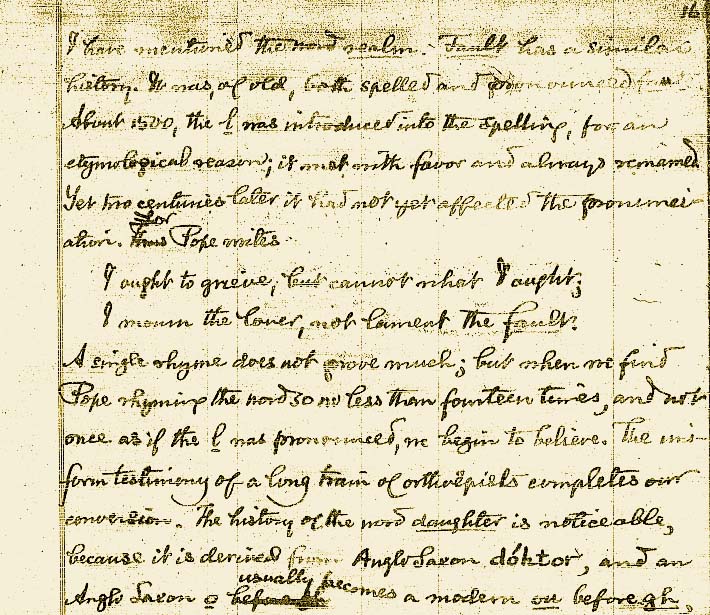 16
I have mentioned the word realm. Fault has a similar
history. It was, of old, both spelled and pronounced
About 1500, the l was introduced into the spelling, for an
etymological reason; it met with favor and always remained
Yet two centuries later it had not yet affected the pronunci-
For
ation. Pope writes
I ought to grieve, but cannot what I ought;
I mourn the lover, not lament the fault.
A single rhyme does not prove much; but when we find
Pope rhyming the word so no less than fourteen times, and not
once as if the l was pronounced, we begin to believe. The uni-
form testimony of a long train of orthoëpists completes our
conversion. The history of the word daughter is noticeable,
because it is derived from Anglo Saxon dóhtor, and an
usually becomes
Anglo Saxon o a modern ou before gh,